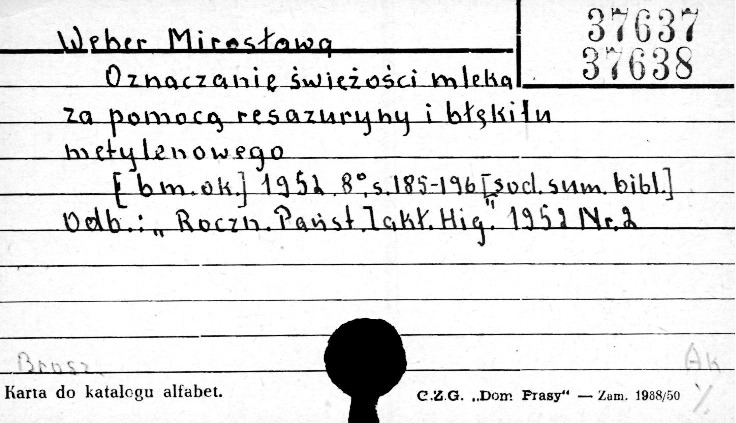 37637
37638
Weber Mirosława
Oznaczanie świeżości mleka
za pomocą resazuryny i błękitu
metylenowego
[bm.ok.] 1952 8° s.185-196 [sod. sum. bibl.]
Odb.: „Roczn. Państ. Zakł. Hig." 1952 Nr. 2
Brosz.
Ak
Karta do katalogu alfabet.
C.Z.G. „Dom Prasy" — Zam. 1988/50